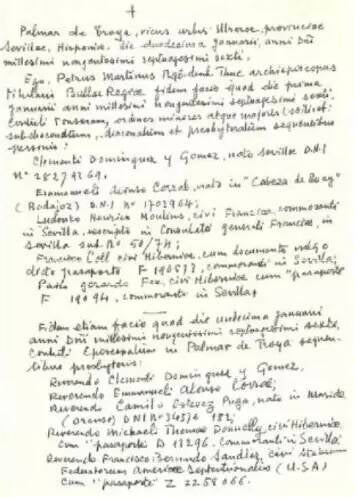 +
Palmar de Troya, vicus urbis Utrerae, provinciae
Sevillae, Hispaniae, die duodecima januarii, anni Dni
millesimi nongentesimi septuagesimi sexti.
Ego, Petrus Martinus Ngô-dinh-Thuc archiepiscopus
titularis Bullae Regiae fidem facio quod die prima
januarii anni millesimi nongentesimi septuagesimi sexti,
Contuli Tonsuram, ordines minores atque majores (scilicet:
subdiaconatum, diaconatum et presbyteratum sequentibus
personis:
Clementi Dominguez y Gomez, nato Sevilla D.N.I
Nº 28279269.
Emmanueli Alonso Corral, nato in "Cabeza de Buey"
(Badajoz) D.N.I Nº
Ludovico Henrico Moulins, civi Franciae, commoranti
in Sevilla, inscripto in Consulatu generali Franciae, in
Sevilla sub Nº 50/74;
Francisco Coll civi Hiberniae, cum documento vulgo
dicto pasaporte F commoranti in Sevilla;
Paulo Gerardo Fox, civi Hiberniae cum "pasaporte
F commorante in Sevilla,
Fidem etiam facio quod die undecima januarii
anni Dni millesimi nongentesimi septuagesimi sexti,
Contuli Episcopatum in Palmar de Troya sequen-
tibus presbyteris:
Reverendo Clementi Dominguez y Gomez,
Reverendo Emmanueli Alonso Corral,
Reverendo Camilo Estevez Puga, nato in
(Orense) DNI Nº
Reverendo Michael Thomas Donnelly, civi Hiberniae
Cum "pasaporte D 18296. Commoranti in Sevilla
Reverendo Francisco Bernardo Sandler, civi Statuum
Federatorum Americae Septentrionalis (U.S.A)
Cum "pasaporte" Z 2258066.